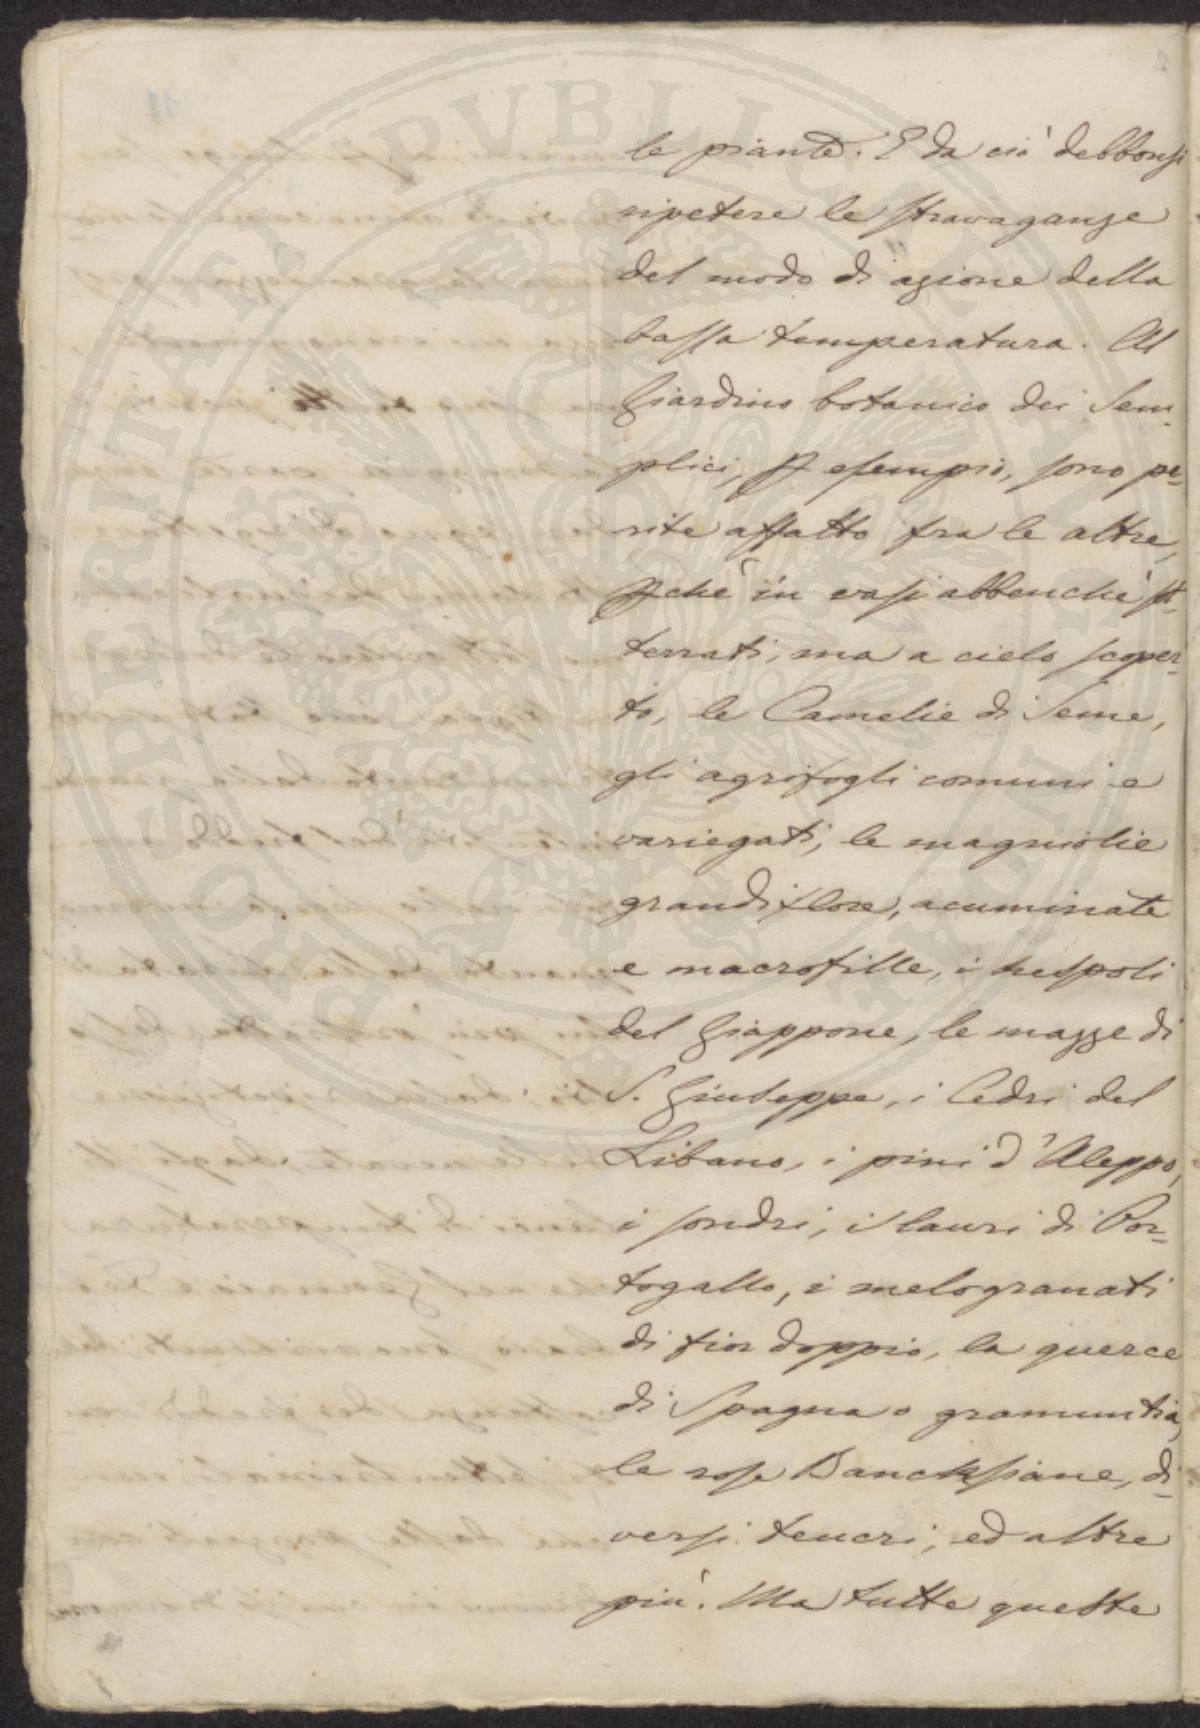 PROSPERITATI PVBLICAE AVGENDAE
le piante. E da ciò debbonsi
ripetere le stravaganze
del modo di azione della
bassa temperatura. Al
Giardino botanico dei Sem=
plici, p esempio, sono pe=
rite affatto fra le altre,
pchè in vasi abbenchè sot=
terrati, ma a cielo scoper=
to, le Camelie di Seme,
gli agrifogli comuni e
variegati, le magnolie
grandiflore, acuminate
e macrofille, i nespoli
del Giappone, le mazze di
S. Giuseppe, i Cedri del
Libano, i pini d'Aleppo,
i sondri, i lauri di Por=
togallo, i melogranati
di fior doppio, la querce
di Spagna o gramuntia,
le rose Bancksiane, di=
versi teucri, ed altre
più. Ma tutte queste